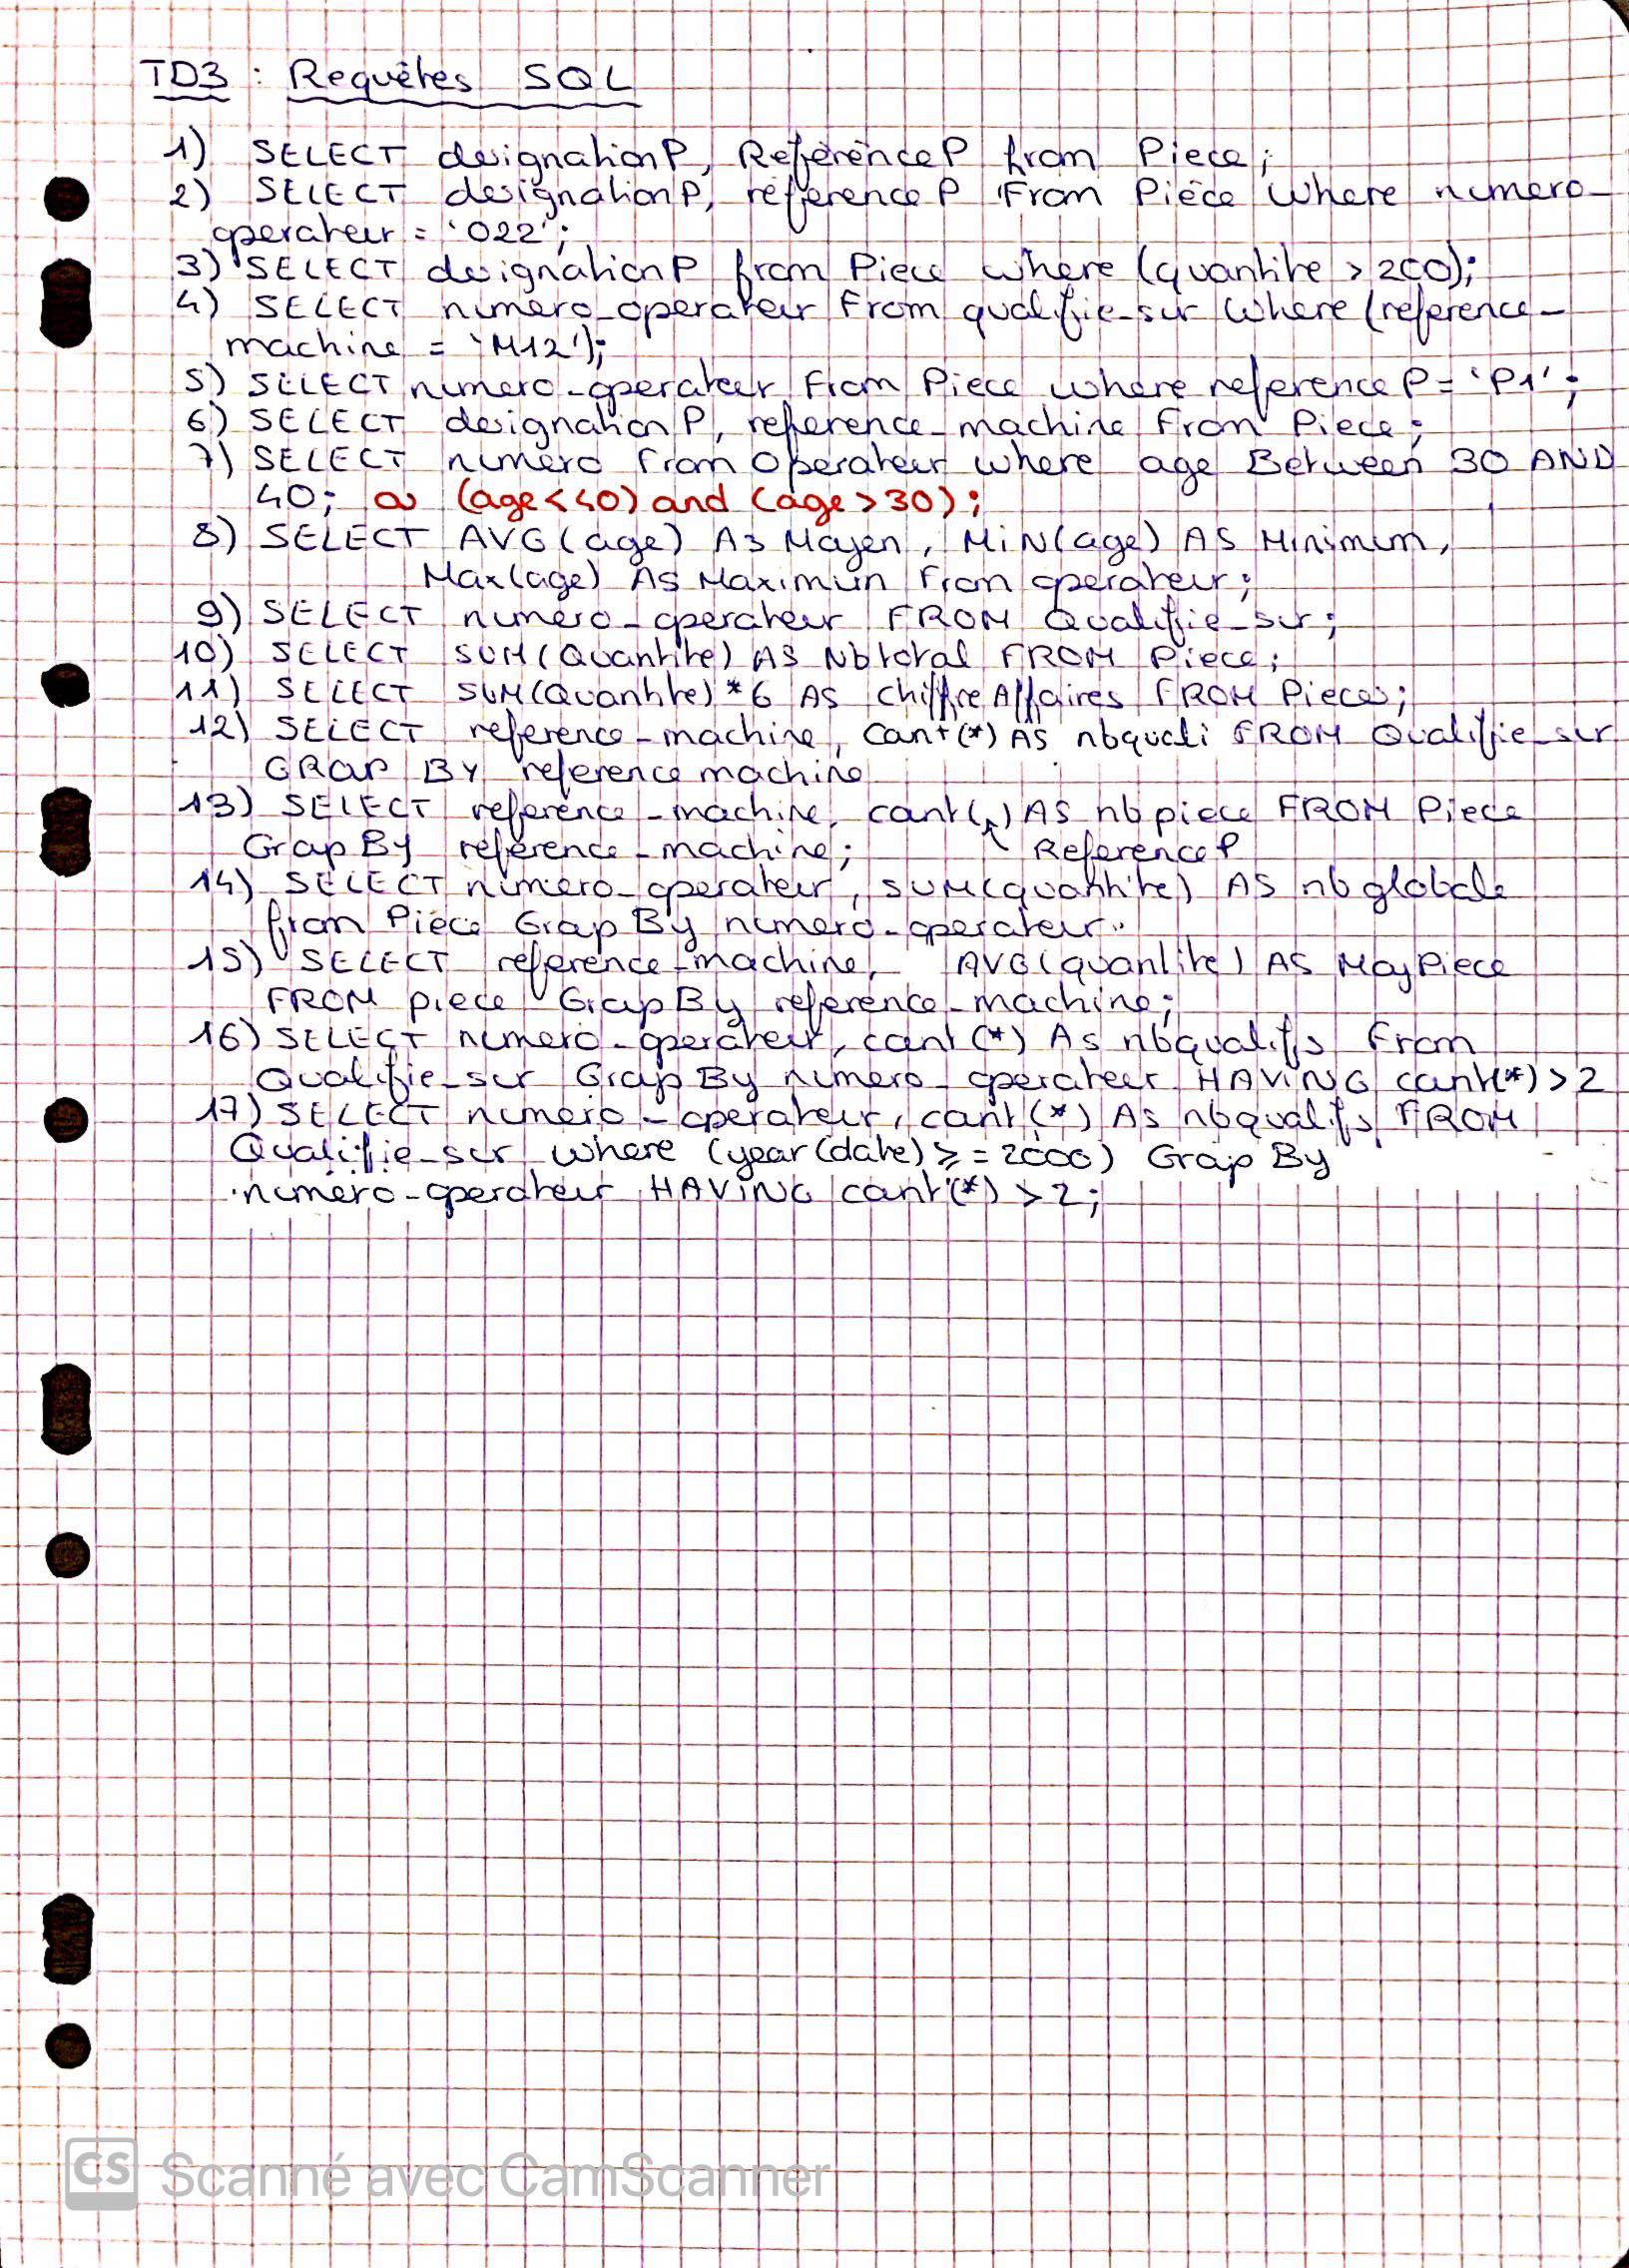 TD3 : Requêtes SQL
1) SELECT designationP, RéférenceP from Piece;
2) SELECT designationP, référenceP From Pièce Where numero_
operateur = '022';
3) SELECT designationP from Piece where (quantite > 200);
4) SELECT numero_operateur From qualifie_sur Where (reference_
machine = 'M12');
5) SELECT numero_operateur From Piece where referenceP = 'P1';
6) SELECT designationP, reference_machine From Piece;
7) SELECT numero From Operateur where age Between 30 AND
40; ou (age<40) and (age>30);
8) SELECT AVG(age) AS Moyen, MiN(age) AS Minimum,
Max(age) AS Maximum From operateur;
9) SELECT numero_operateur FROM Qualifie_sur;
10) SELECT SUM(Quantite) AS Nbtotal FROM Piece;
11) SELECT SUM(Quantite)*6 AS chiffreAffaires FROM Pieces;
12) SELECT reference_machine, Count(*) AS nbquali FROM Qualifie_sur
GROUP BY reference machine
13) SELECT référence_machine, count( ) AS nbpiece FROM Piece
Group By référence_machine; ReferenceP
14) SELECT numero_operateur, SUM(quantite) AS nbglobale
from Pièce Group By numero_operateur..
15) SELECT reference_machine, AVG(quantite) AS MoyPiece
FROM piece Group By reference_machine;
16) SELECT numero_operateur, count(*) As nbqualifs From
Qualifie_sur Group By numero_operateur HAVING count(*) > 2
17) SELECT numero_operateur, count(*) As nbqualifs FROM
Qualifie_sur where (year(date) >= 2000) Group By
numero_operateur HAVING count(*) > 2;
CS Scanné avec CamScanner